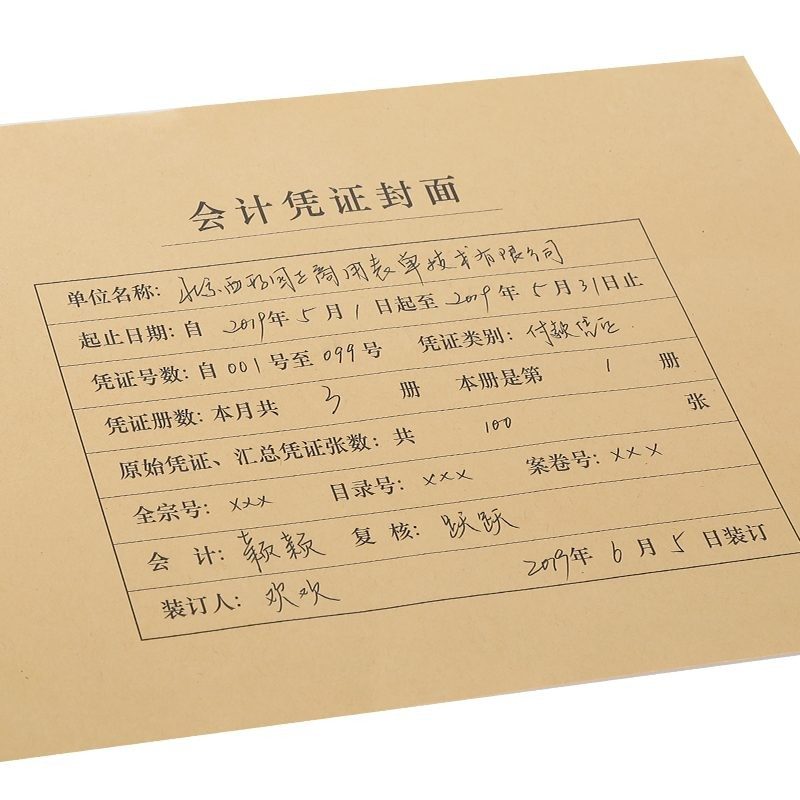 会计凭证封面
单位名称: 北京西玛同正商用表单技术有限公司
起止日期: 自 2019年 5 月 1 日起至 2019 年 5 月 31 日止
凭证号数: 自 001 号至 099 号 凭证类别: 付款凭证
凭证册数: 本月共 3 册 本册是第 1 册
原始凭证、汇总凭证张数: 共 100 张
全宗号: xxx 目录号: xxx 案卷号: xxx
会 计: 颖颖 复 核: 跃跃
装订人: 欢欢 2019年 6 月 5 日装订